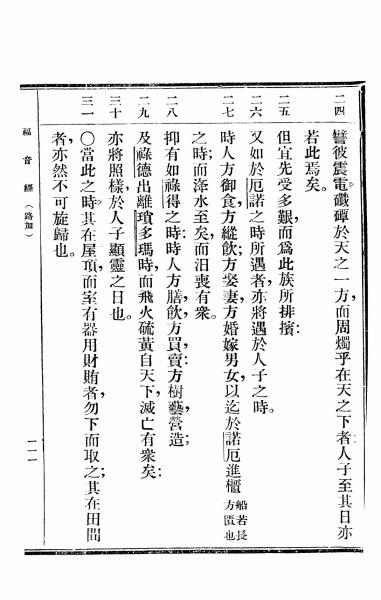 二四
譬彼震電、爥磹於天之一方、而周燭乎在天之下者、人子至其日亦
若此焉矣。
二五
但宜先受多艱、而爲此族所排擯；
二六
又如於厄諾之時所遇者、亦將遇於人子之時。
二七
時人方御食、方縱飲、方娶妻、方婚嫁男女、以迄於諾厄進櫃
船若長
方匱也
之時；而洚水至矣、而汨喪有衆。
二八
抑有如祿得之時：時人方膳飲、方買賣、方樹藝、營造；
二九
及祿德出離瑣多瑪時、而飛火硫黃自天下、滅亡有衆矣：
三十
亦將照樣於人子顯靈之日也。
三一
〇當此之時、其在屋頂、而室有器用財賄者、勿下而取之；其在田間
者、亦然不可旋歸也。
福音經
（路加）
一一一